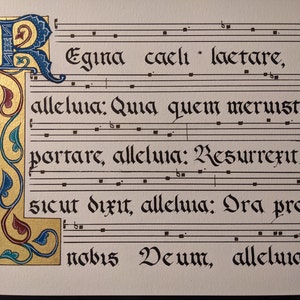 Regina caeli * laetare,
alleluia: Quia quem meruist
portare, alleluia: Resurrexit
sicut dixit, alleluia: Ora pro
nobis Deum, alleluia